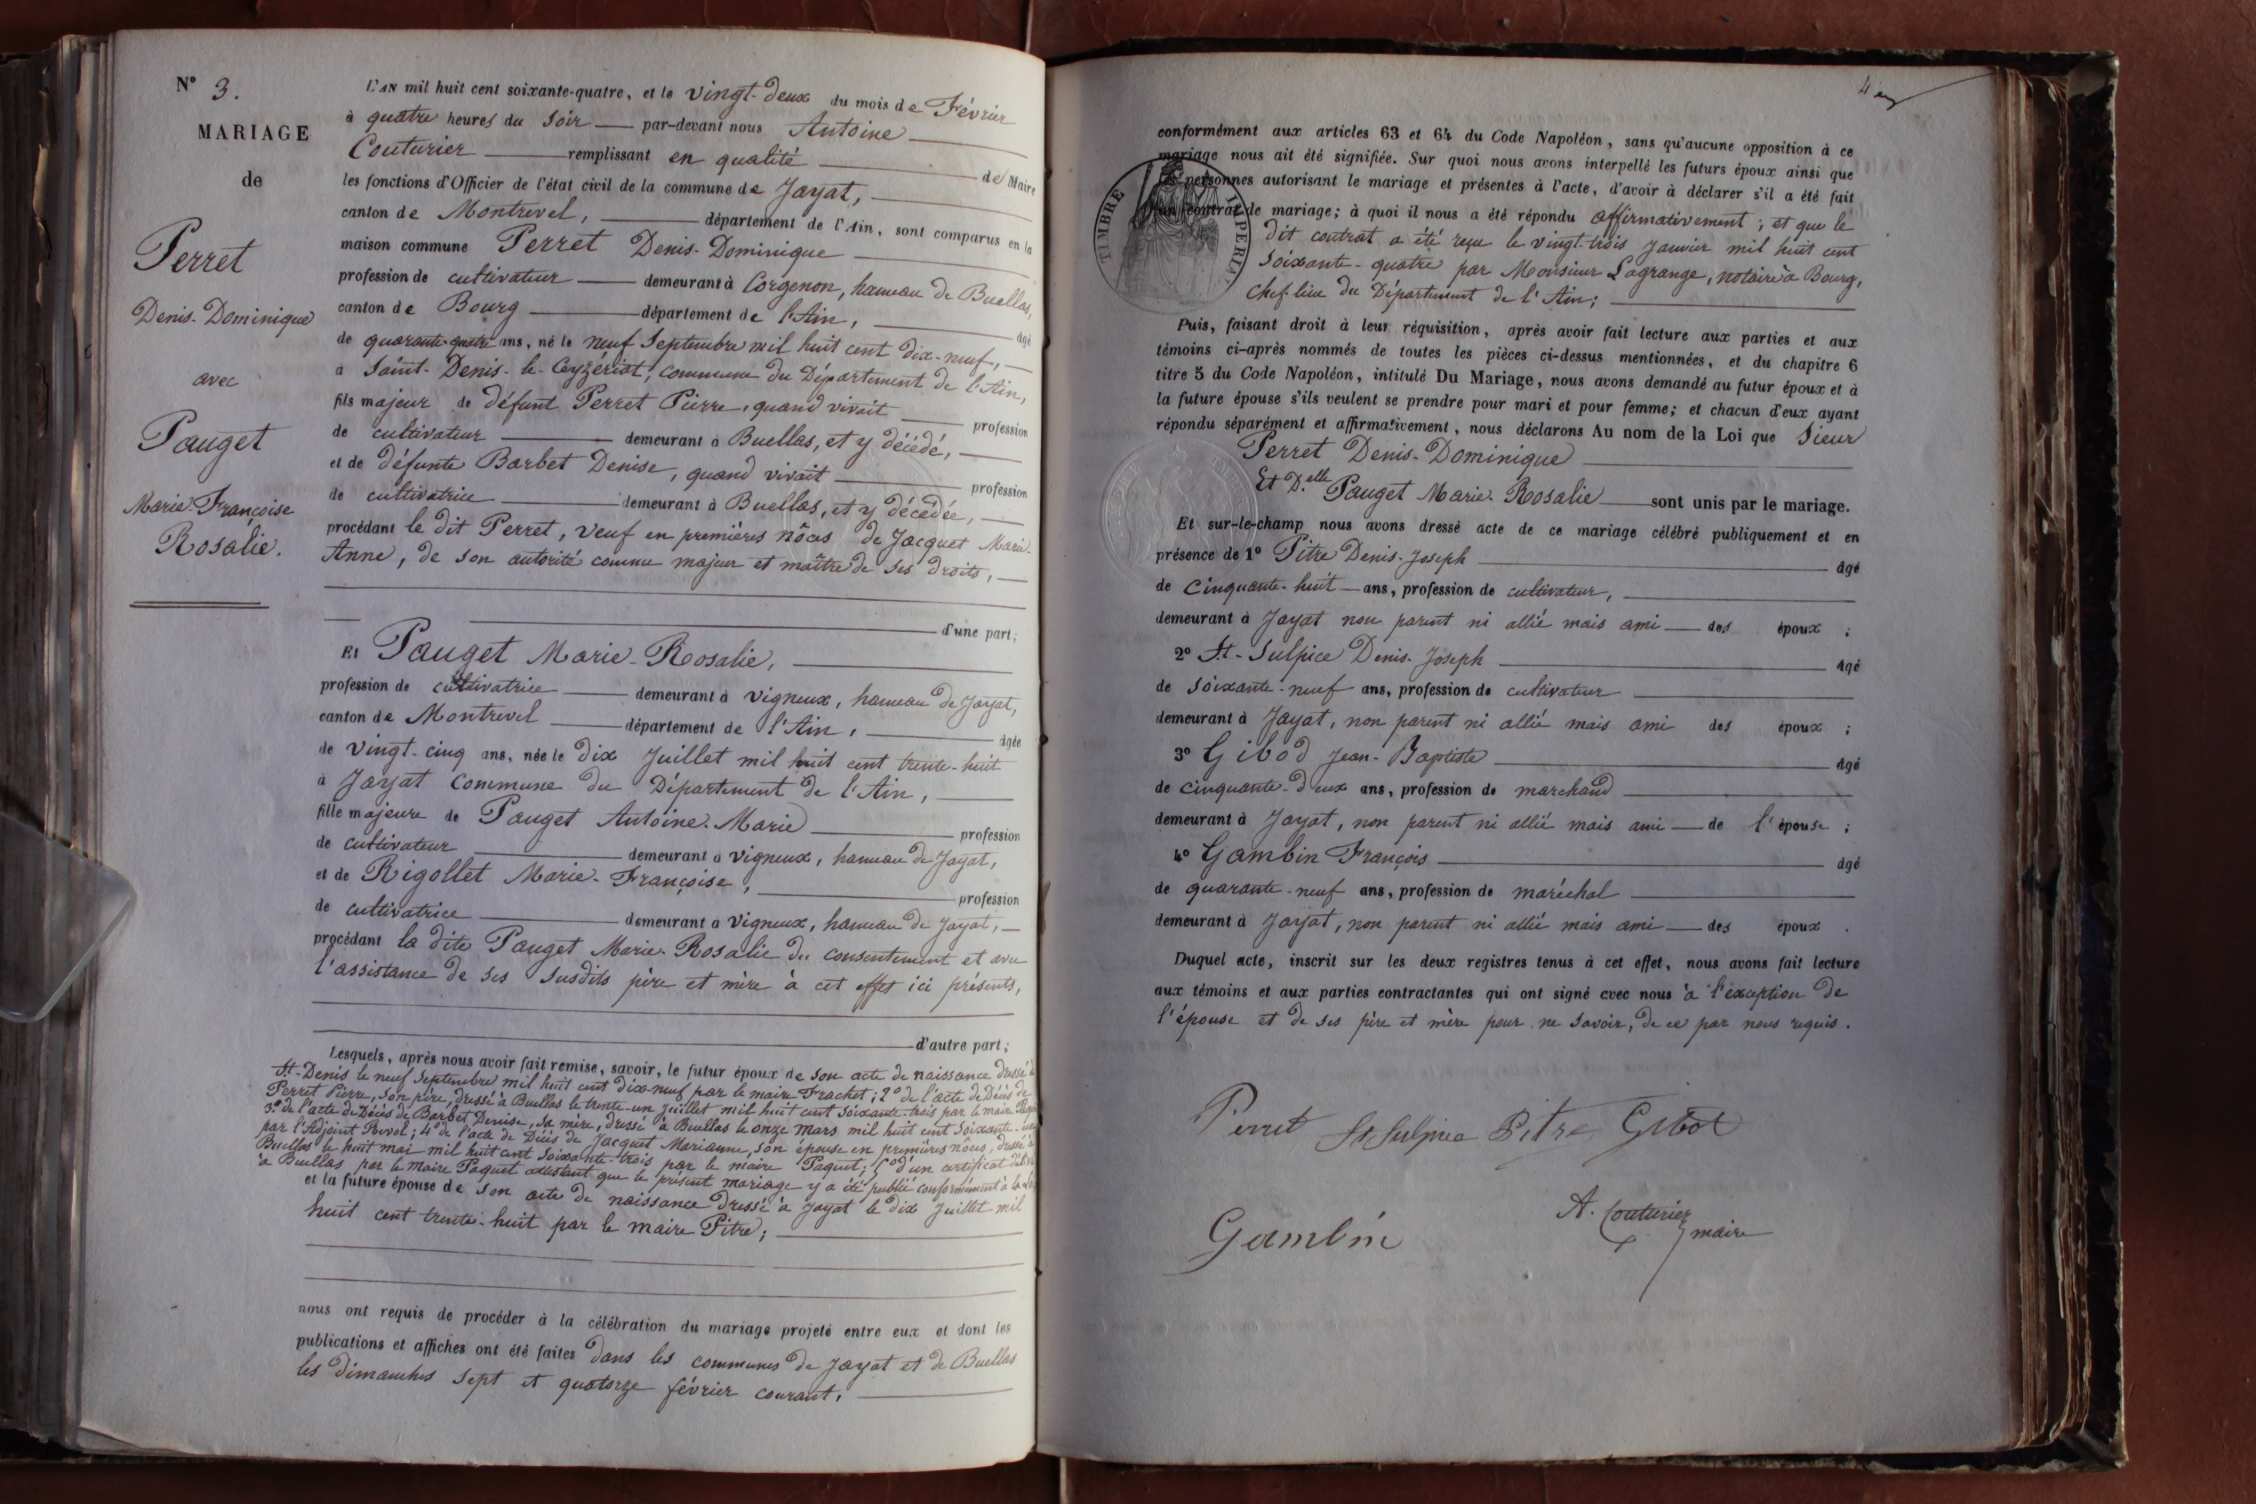 N° 3.
MARIAGE
de
Perret
Denis-Dominique
avec
Pauget
Marie-Françoise
Rosalie.
L'AN mil huit cent soixante-quatre, et le vingt-deux du mois de Février
à quatre heures du soir par-devant nous Antoine
Couturier remplissant en qualité de Maire
les fonctions d'Officier de l'état civil de la commune de Jayat,
canton de Montrevel, département de l'Ain, sont comparus en la
maison commune Perret Denis-Dominique
profession de cultivateur demeurant à Corgenon, hameau de Buellas,
canton de Bourg département de l'Ain, âgé
de quarante-quatre ans, né le neuf Septembre mil huit cent dix-neuf,
à Saint-Denis-le-Ceyzériat, commune du Département de l'Ain,
fils majeur de défunt Perret Pierre, quand vivait profession
de cultivateur demeurant à Buellas, et y décédé,
et de défunte Barbet Denise, quand vivait profession
de cultivatrice demeurant à Buellas, et y décédée,
procédant le dit Perret, veuf en premières nôces de Jacquet Marie-
Anne, de son autorité comme majeur et maître de ses droits,
d'une part;
Et Pauget Marie-Rosalie,
profession de cultivatrice demeurant à Vigneux, hameau de Jayat,
canton de Montrevel département de l'Ain, âgée
de vingt-cinq ans, née le dix Juillet mil huit cent trente-huit
à Jayat commune du Département de l'Ain,
fille majeure de Pauget Antoine-Marie profession
de cultivateur demeurant à Vigneux, hameau de Jayat,
et de Rigollet Marie-Françoise, profession
de cultivatrice demeurant à Vigneux, hameau de Jayat,
procédant la dite Pauget Marie-Rosalie du consentement et avec
l'assistance de ses susdits père et mère à cet effet ici présents,
d'autre part;
Lesquels, après nous avoir fait remise, savoir, le futur époux de son acte de naissance dressé à
St-Denis le neuf Septembre mil huit cent dix-neuf par le maire Frachet; 2° de l'acte de Décès de
Perret Pierre, son père, dressé à Buellas le trente-un Juillet mil huit cent soixante-trois par le maire
3° de l'acte de Décès de Barbet Denise, sa mère, dressé à Buellas le onze mars mil huit cent soixante
par l'Adjoint Revol; 4° de l'acte de Décès de Jacquet Marianne, son épouse en premières nôces, dressé à
Buellas le huit mai mil huit cent soixante-trois par le maire Paquet; 5° d'un certificat
à Buellas par le maire Paquet attestant que le présent mariage y a été publié conformément à la Loi
et la future épouse de son acte de naissance dressé à Jayat le dix Juillet mil
huit cent trente-huit par le maire Pitre;
nous ont requis de procéder à la célébration du mariage projeté entre eux et dont les
publications et affiches ont été faites dans les communes de Jayat et de Buellas
les dimanches sept et quatorze février courant,
conformément aux articles 63 et 64 du Code Napoléon, sans qu'aucune opposition à ce
mariage nous ait été signifiée. Sur quoi nous avons interpellé les futurs époux ainsi que
les personnes autorisant le mariage et présentes à l'acte, d'avoir à déclarer s'il a été fait
un contrat de mariage; à quoi il nous a été répondu affirmativement; et que le
dit contrat a été reçu le vingt-trois Janvier mil huit cent
soixante-quatre par Monsieur Lagrange, notaire à Bourg,
chef-lieu du Département de l'Ain;
TIMBRE IMPERIAL
Puis, faisant droit à leur réquisition, après avoir fait lecture aux parties et aux
témoins ci-après nommés de toutes les pièces ci-dessus mentionnées, et du chapitre 6
titre 5 du Code Napoléon, intitulé Du Mariage, nous avons demandé au futur époux et à
la future épouse s'ils veulent se prendre pour mari et pour femme; et chacun d'eux ayant
répondu séparément et affirmativement, nous déclarons Au nom de la Loi que Sieur
Perret Denis-Dominique
Et D.elle Pauget Marie-Rosalie sont unis par le mariage.
Et sur-le-champ nous avons dressé acte de ce mariage célébré publiquement et en
présence de 1° Pitre Denis-Joseph âgé
de cinquante-huit ans, profession de cultivateur,
demeurant à Jayat non parent ni allié mais ami des époux ;
2° St-Sulpice Denis-Joseph âgé
de soixante-neuf ans, profession de cultivateur
demeurant à Jayat, non parent ni allié mais ami des époux ;
3° Gibod Jean-Baptiste âgé
de cinquante-deux ans, profession de marchand
demeurant à Jayat, non parent ni allié mais ami de l'épouse ;
4° Gambin François âgé
de quarante-neuf ans, profession de maréchal
demeurant à Jayat, non parent ni allié mais ami des époux .
Duquel acte, inscrit sur les deux registres tenus à cet effet, nous avons fait lecture
aux témoins et aux parties contractantes qui ont signé avec nous à l'exception de
l'épouse et de ses père et mère pour ne savoir, de ce par nous requis.
Perret St Sulpice Pitre Gibod
Gambin
A. Couturier
maire